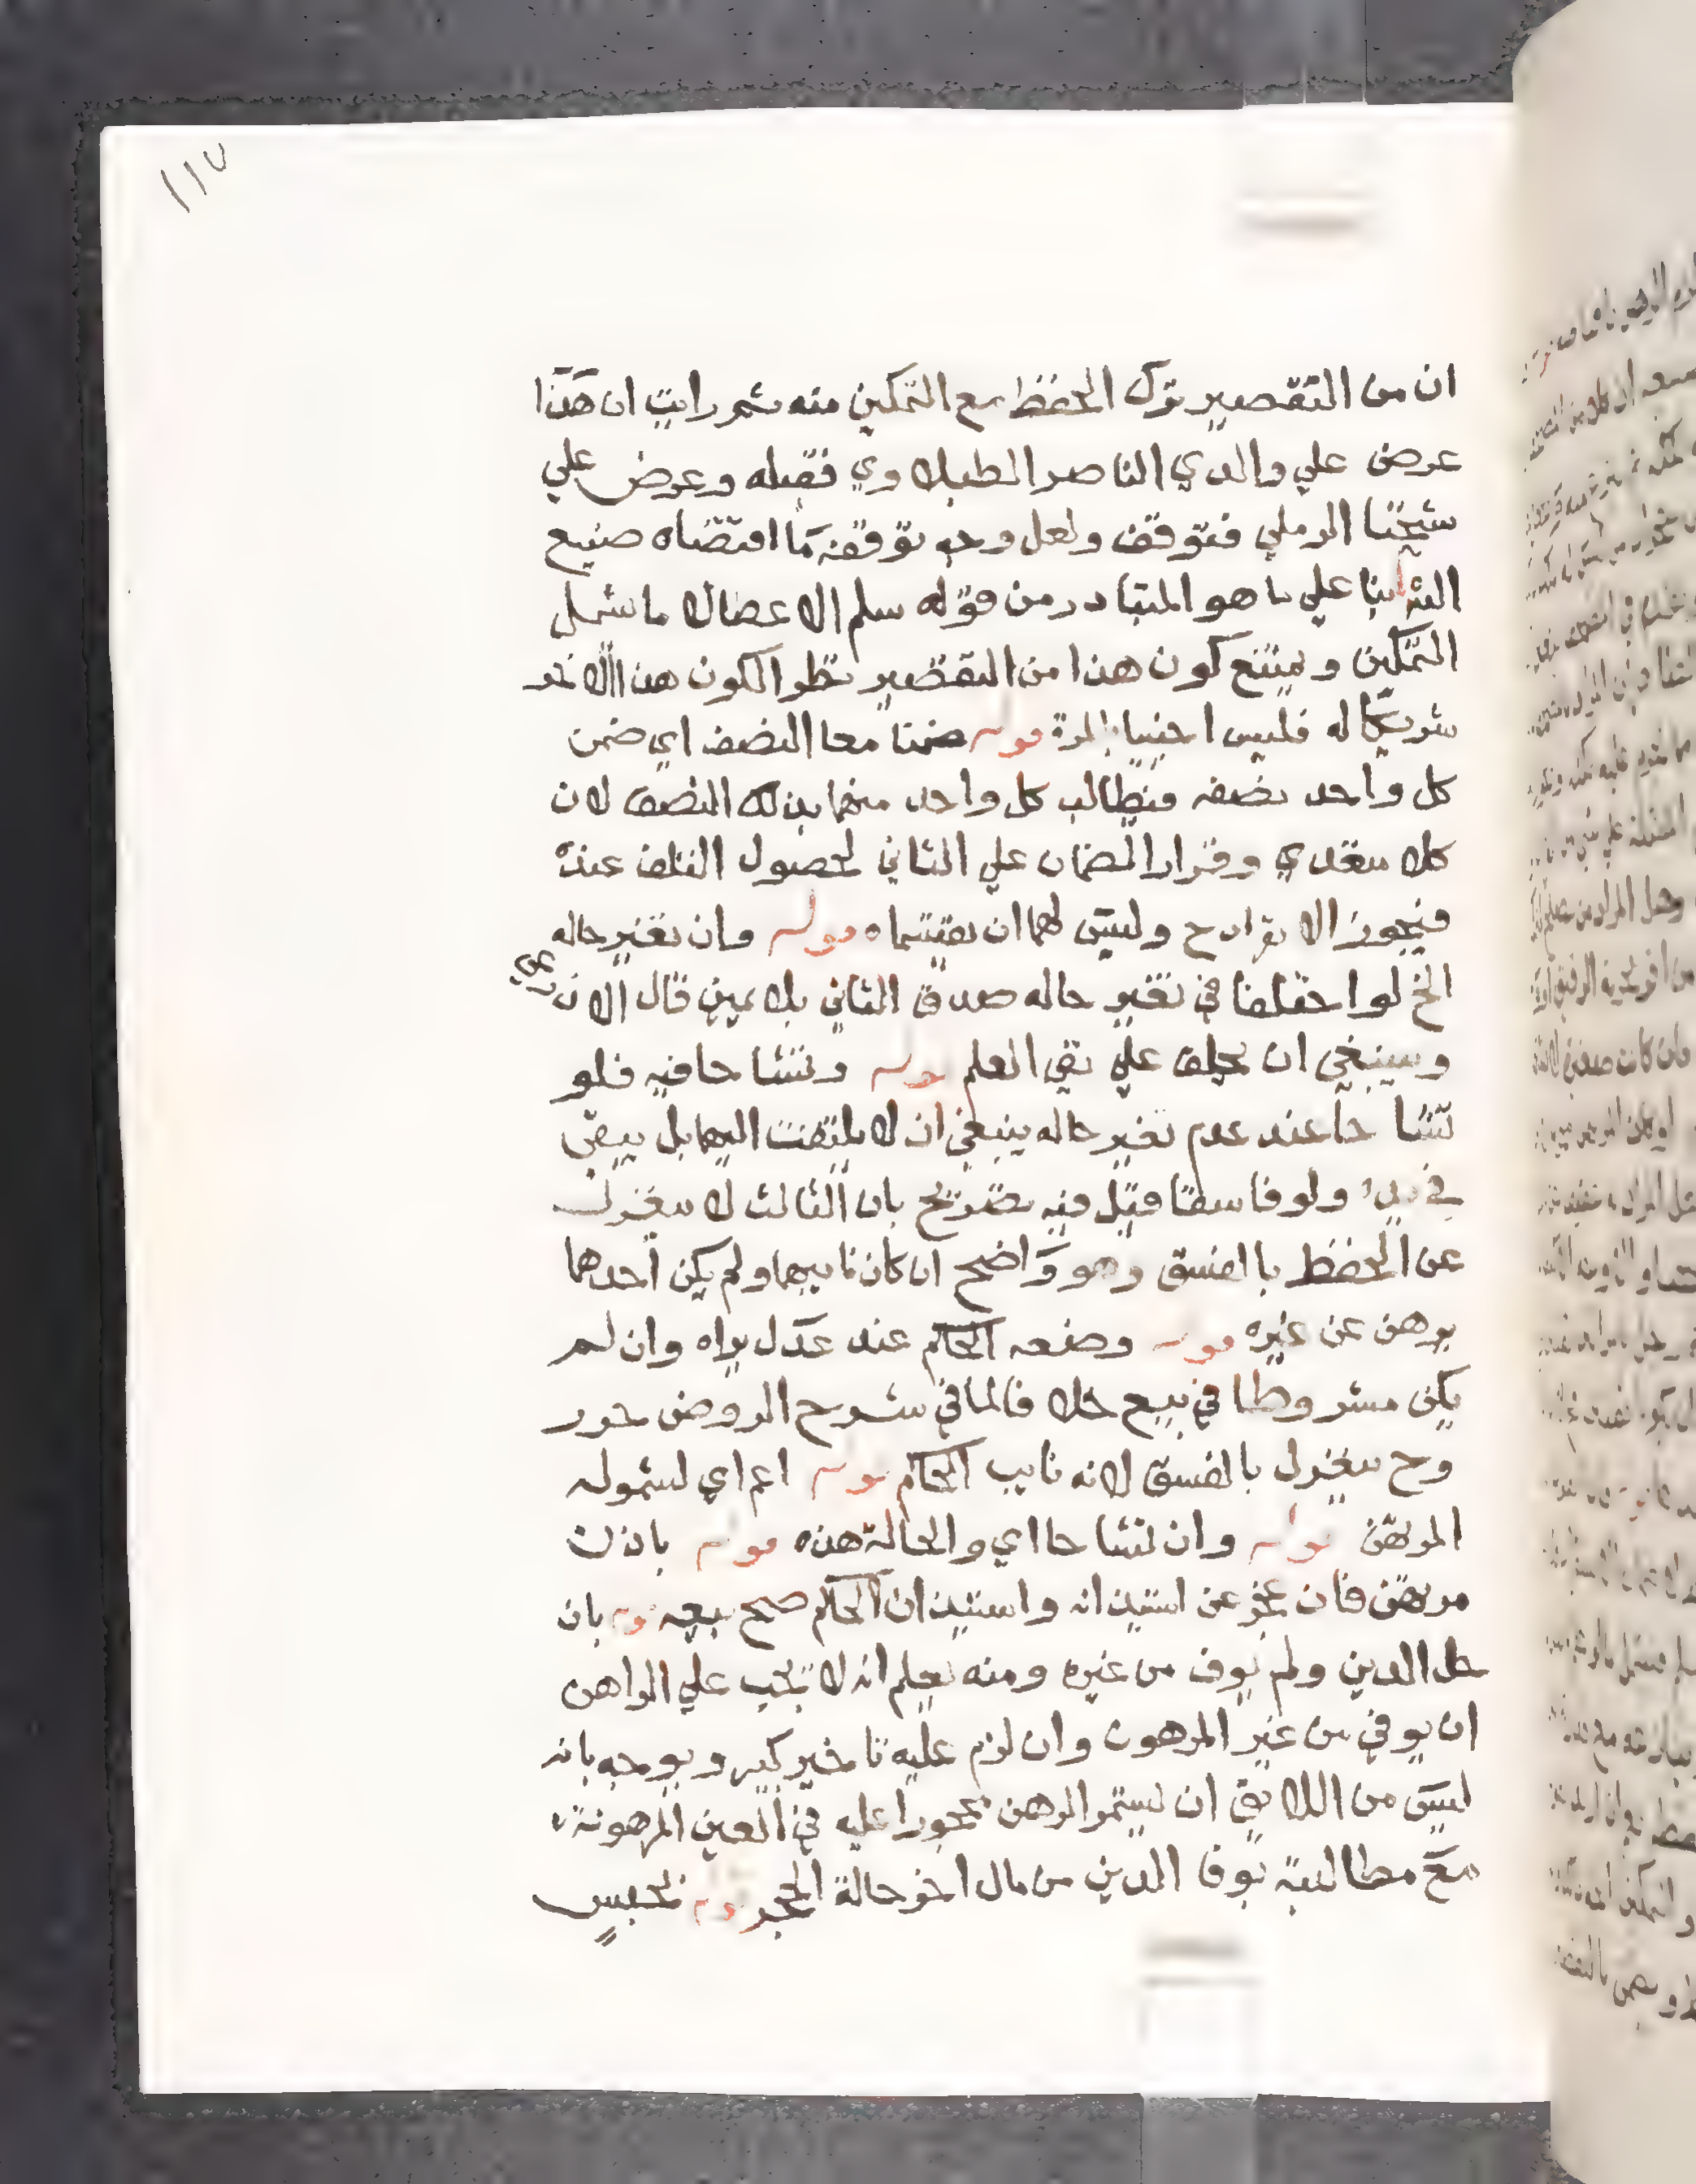 ١١٧
ان من التقصير ترك الحفظ مع التمكين منه ثم رايت ان هذا
عرض علي والدي الناصر الطبلاوي فقبله وعرض علي
شيخنا الرملي فتوقف ولعل وجه توقفه ما اقتضاه صنيع
علي ما هو المتبادر من قوله سلم الا عضال ما شمل
التمكين ويمتنع كون هذا من التقصير نظرا لكون هذا الاخر
شريكا له فليس اجنبيا بالمرة قوله ضمنا معا النصف اي ضمن
كل واحد نصفه فيطالب كل واحد منهما بذلك النصف لان
كلا متعدي وقرار الضمان علي الثاني لحصول التلف عنده
فيجوز الانفراد ح وليس لهما ان يقتسماه قوله وان تغير حاله
الخ لو اختلفا في تغير حاله صدق الثاني بلا يمين قال الاذرعي
وينبغي ان يحلف علي نفي العلم قوله وتشاحا فيه فلو
تشاحا عند عدم تغير حاله ينبغي ان لا يلتفت اليهما بل يبقي
في يده ولو فاسقا قيل فيه تصريح بان الثالث لا ينعزل
عن الحفظ بالفسق وهو واضح ان كان نايبهما ولم يكن احدهما
يرهن عن غيره قوله وضعه الحاكم عند عدل يراه وان لم
يكن مشروطا في بيع خلافا لما في شرح الروض حرر
وح ينعزل بالفسق لانه نايب الحاكم قوله اعم اي لشموله
المرتهن قوله وان تشاحا اي والحالة هذه قوله باذن
مرتهن فان عجز عن استيذانه واستيذان الحاكم صح بيعه قوله بان
حل الدين ولم يوف من غيره ومنه يعلم انه لا يجب علي الراهن
ان يوفي من غير المرهون وان لزم عليه تاخير كبير ويوجه بانه
ليس من اللايق ان يستمر الرهن محجورا عليه في العين المرهونة
مع مطالبته بوفا الدين من مال اخر حالة الحجر قوله بحبس